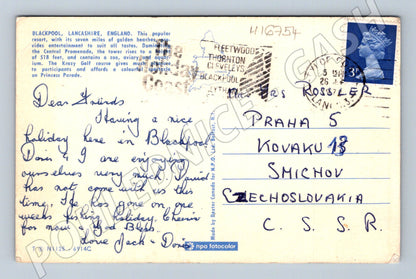 BLACKPOOL, LANCASHIRE, ENGLAND. This popular
resort, with its seven miles of golden beaches
vides entertainment to suit all tastes.
the Central Promenade, the Tower rises to a
of 518 feet, and contains a zoo, aviary
The Krazy Golf course gives
to participants and affords a colourful
on Princess Parade.
416754
FLEETWOOD
THORNTON
CLEVELEYS
BLACKPOOL
LYTHAM
Coast
3P
Dear Friends
Having a nice
holiday here in Blackpool
Doris & I are enjoying
ourselves very much David
has not come with us this
time. He has gone on one
weeks fishing holiday. Cheerio
for now & God Bless
Love Jack - Doris
MRS ROSSLER
PRAHA 5
KOVAKU 13
SMICHOV
CZECHOSLOVAKIA
C. S. S. R.
npa fotocolor